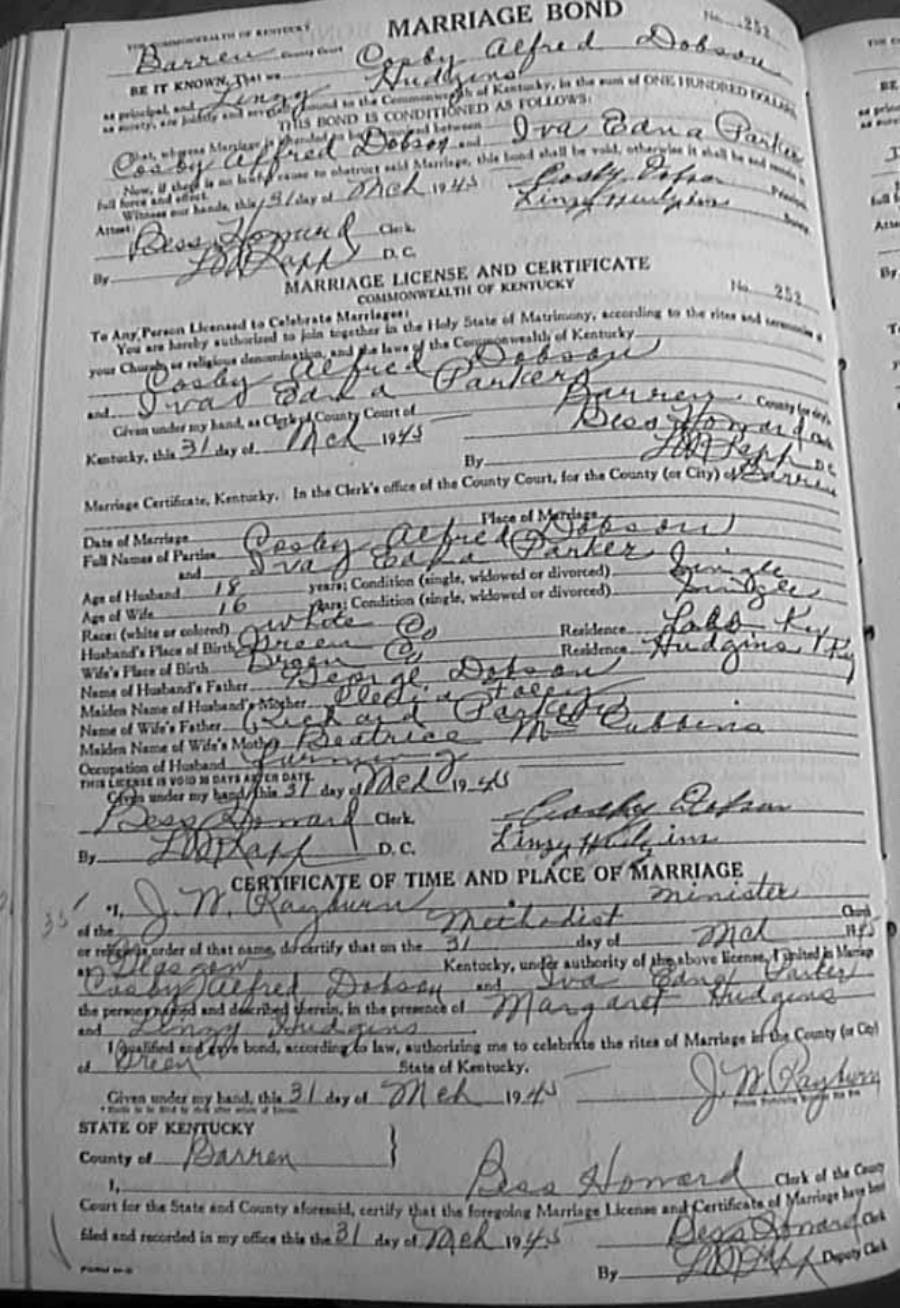 MARRIAGE BOND
No. 252
THE COMMONWEALTH OF KENTUCKY
Barren County Court
BE IT KNOWN, That we Cosby Alfred Dobson
as principal, and Linzy Hudgins
as surety, are jointly and bound to the Commonwealth of Kentucky, in the sum of ONE HUNDRED DOLLARS
THIS BOND IS CONDITIONED AS FOLLOWS:
That, whereas Marriage is intended to be between
Cosby Alfred Dobson and Iva Edna Parker
Now, if there is no lawful cause to obstruct said Marriage, this bond shall be void, otherwise it shall be and remain in
full force and effect.
Witness our hands, this 31 day of Mch 1945 Cosby Dobson Principal
Linzy Hudgins Surety
Attest:
Bess Howard Clerk.
By D. C.
MARRIAGE LICENSE AND CERTIFICATE
COMMONWEALTH OF KENTUCKY
No. 252
To Any Person Licensed to Celebrate Marriages:
You are hereby authorized to join together in the Holy State of Matrimony, according to the rites and ceremonies of
your Church or religious denomination, and the laws of the Commonwealth of Kentucky
Cosby Alfred Dobson
and Iva Edna Parker
Given under my hand, as Clerk of County Court of Barren County (or city),
Kentucky, this 31 day of Mch 1945 Bess Howard Clk
By D C
Marriage Certificate, Kentucky. In the Clerk's office of the County Court, for the County (or City) of Barren
Date of Marriage Place of Marriage
Full Names of Parties Cosby Alfred Dobson
and Iva Edna Parker
Age of Husband 18 years; Condition (single, widowed or divorced) Single
Age of Wife 16 years; Condition (single, widowed or divorced) Single
Race: (white or colored) white
Husband's Place of Birth Green Co Residence Ky
Wife's Place of Birth Green Co Residence Hudgins Ky
Name of Husband's Father George Dobson
Maiden Name of Husband's Mother
Name of Wife's Father Richard Parker
Maiden Name of Wife's Mother Beatrice McCubbins
Occupation of Husband Farming
THIS LICENSE IS VOID 30 DAYS AFTER DATE
Given under my hand, this 31 day of Mch 1945
Bess Howard Clerk. Cosby Dobson
By D. C. Linzy Hudgins
CERTIFICATE OF TIME AND PLACE OF MARRIAGE
*I, J. W. Rayburn, minister
of the Methodist Church
or religious order of that name, do certify that on the 31 day of Mch 1945
at Glasgow Kentucky, under authority of the above license, I united in Marriage
Cosby Alfred Dobson and Iva Edna Parker
the persons named and described therein, in the presence of Margaret Hudgins
and Linzy Hudgins
I qualified and gave bond, according to law, authorizing me to celebrate the rites of Marriage in the County (or City)
of Green State of Kentucky.
Given under my hand, this 31 day of Mch 1945 J. W. Rayburn
STATE OF KENTUCKY
County of Barren
I, Bess Howard Clerk of the County
Court for the State and County aforesaid, certify that the foregoing Marriage License and Certificate of Marriage have been
filed and recorded in my office this the 31 day of Mch 1945 Bess Howard Clerk
By Deputy Clerk